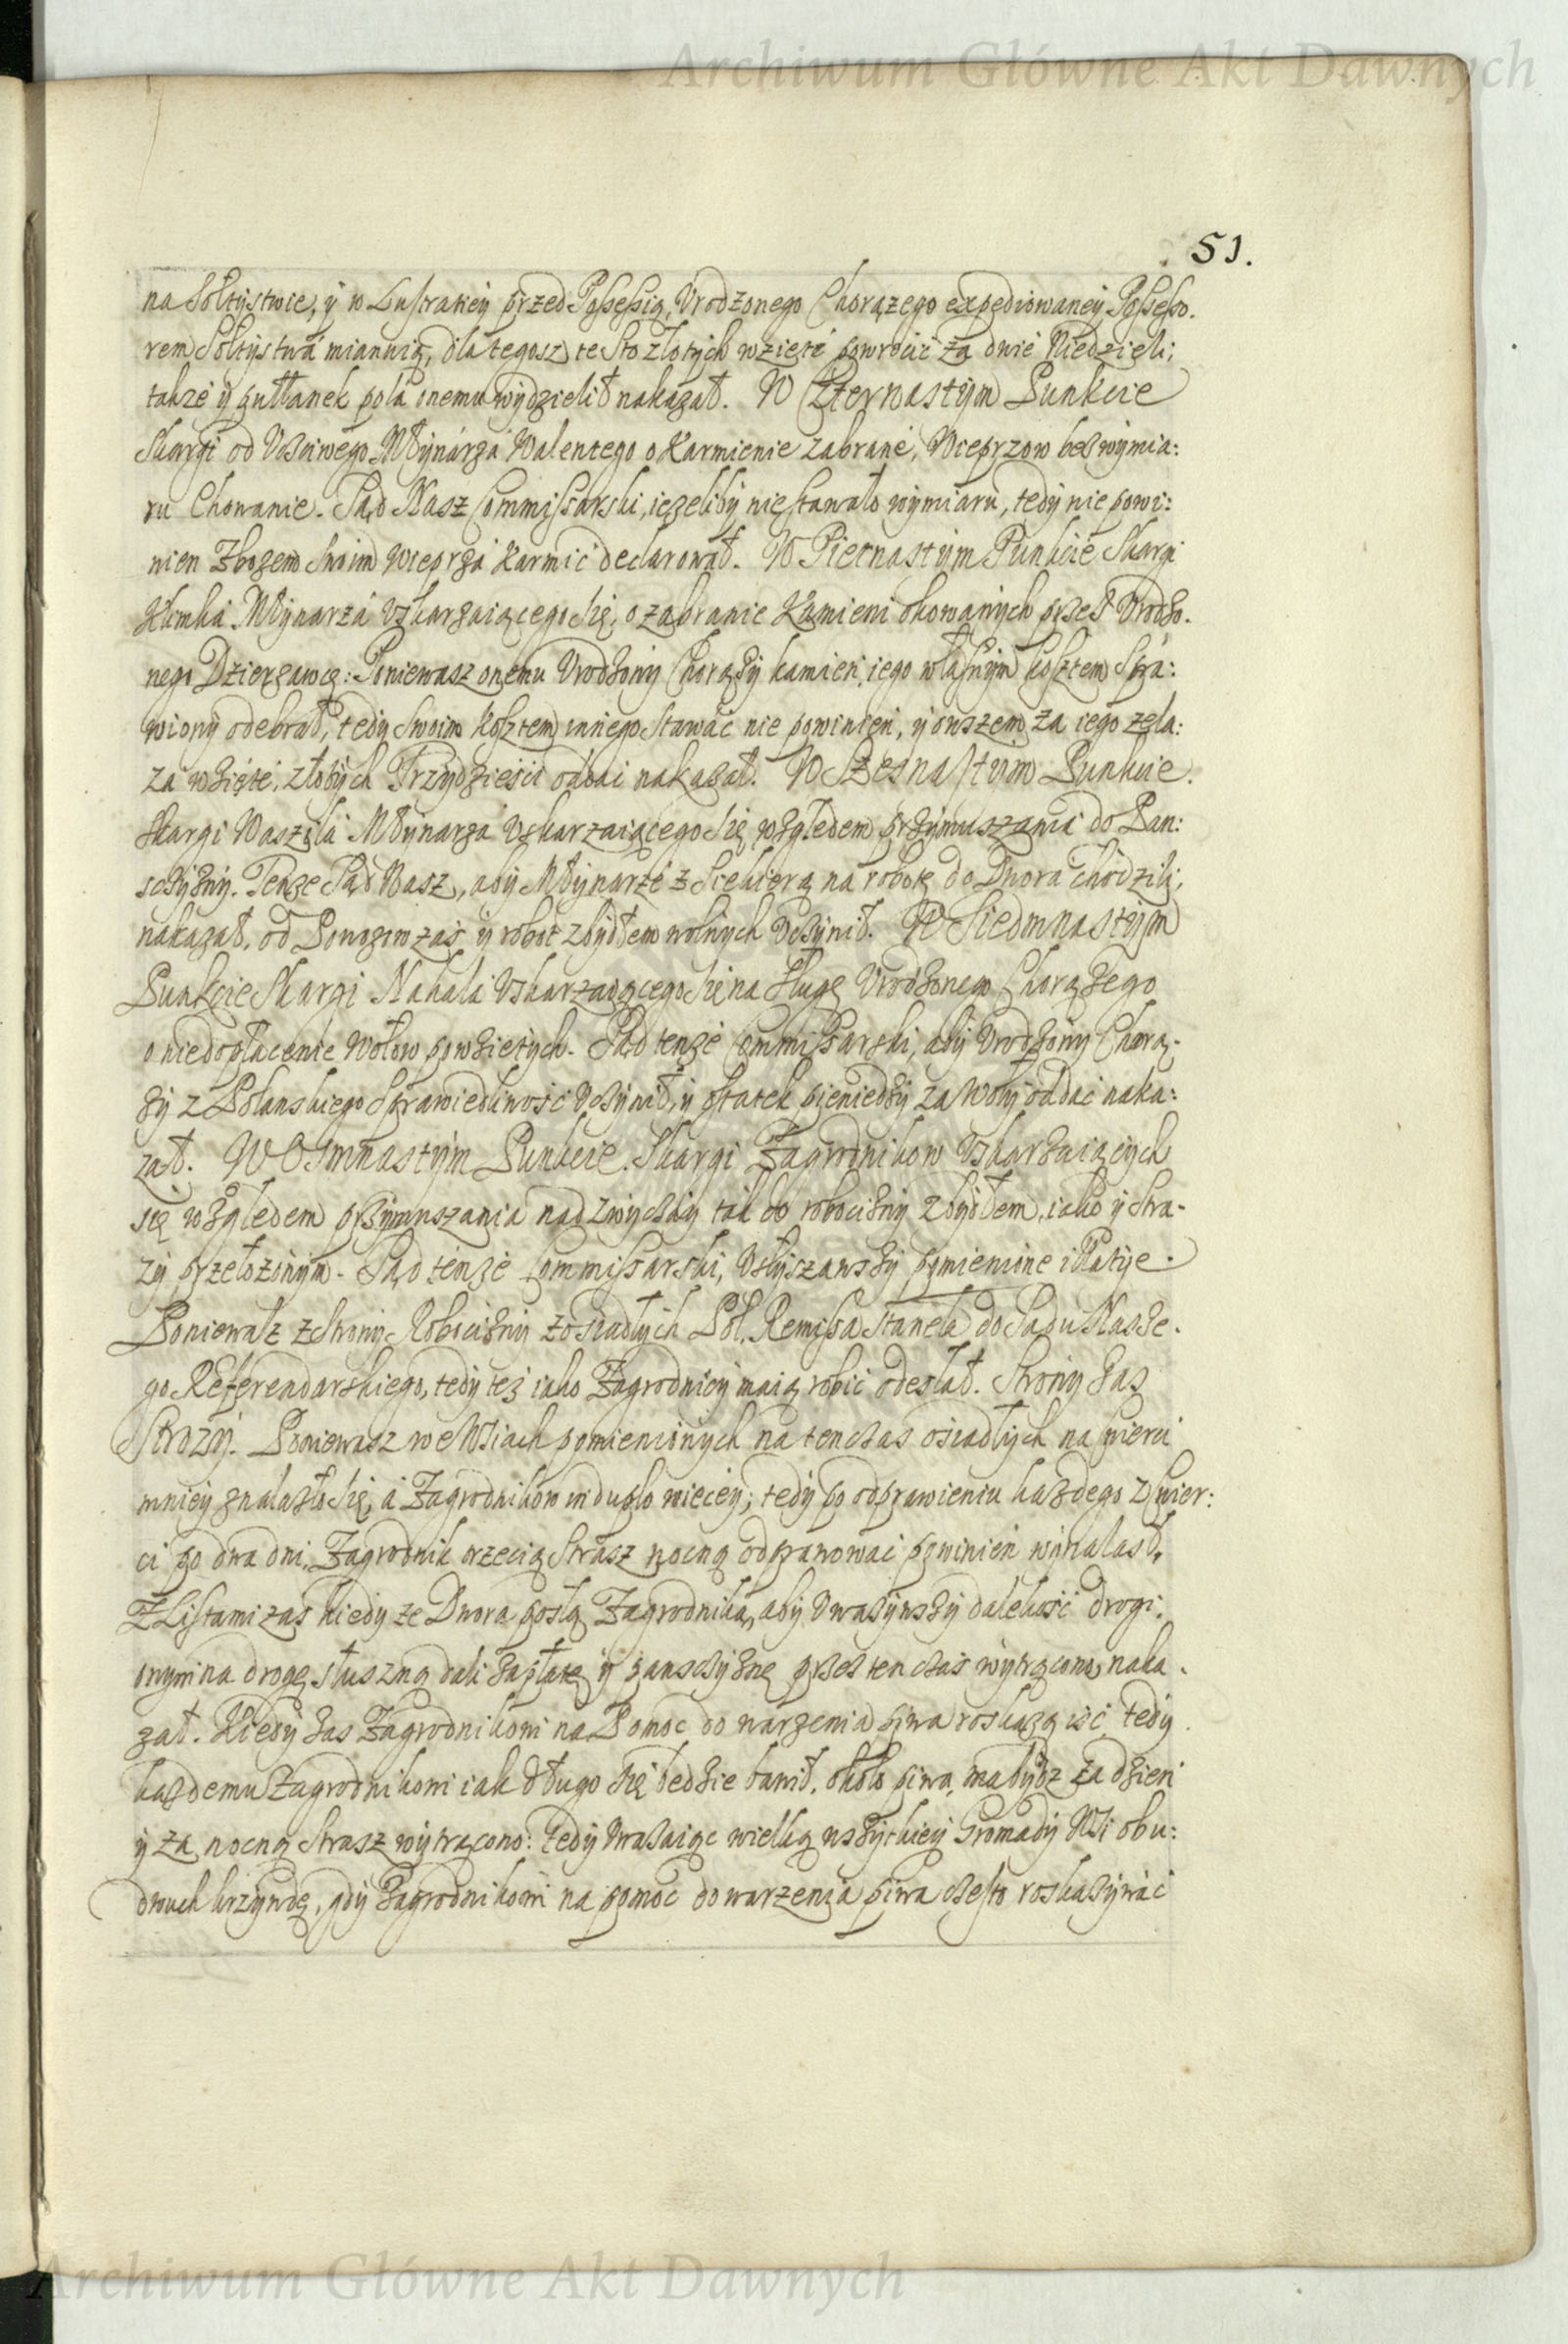 Archiwum Główne Akt Dawnych
51.
na Sołtystwie, y w Lustratiey przed Possessią, Vrodzonego Chorązego expediowaney Possesso.
rem Sołtystwa mianuią, dla tegosz te Sto złotych wzięte powrocić za dwie Niedzieli;
takze y pułłanek pola onemu wydzielił nakazał. W Czternastym Punkcie
Skargi od Vsciwego Młynárza Walentego o Karmienie zabrane, Wieprzow bes wymia:
ru Chowanie. Sąd Nasz Commissarski, iezeliby nie stawało wymiaru, tedy nie powi:
nien Zbozem Swoim wieprza karmić declarował. W Pietnastym Punkcie Skargi
Klimka Młynarza Vskarzaiącego się, o zabranie Kamieni okowanych przes Vrodzo.
nego Dzierzawcę: Poniewasz onemu Vrodzony Chorązy kamień iego własnym kosztem Spra:
wiony odebrał, tedy Swoim kosztem innego stawać nie powinien, y owszem za iego zela:
za wzięte, złotych Trzydzieści oddać nakazał. W Szesnastym Punkcie.
Skargi Waszila Młynarza Vskarzaiącego się względem przymuszania do Pan:
sczyzny. Tenze Sąd Nasz, aby Młynarze z Siekierą na robotę do Dwora chodzili,
nakazał, od Powozow zaś y robot z bydłem wolnych vczynił. W Siedmnastym
Punkcie Skargi Nahala Vskarzaiącego się na Sługę Vrodzonego Chorązego
o niedopłacenie Wołow powzietych. Sąd tenze Commissarski, aby Vrodzony Chorą.
zy z Polanskiego Sprawiedliwość vczynił, y ostatek pieniedzy za Woły oddać naka:
zał. W Osmnastym Punkcie. Skargi Zagrodnikow Vskarzaiących
się względem przymuszania nad zwyczay tak do robocizny z bydłem, iako y Stra-
zy przełozonym. Sąd tenze Commissarski, Vsłyszawszy pomienione iKatije.
Poniewasz z Strony Robocizny z osiadłych Pol, Remissa stanela do Sądu Nasze.
go Referendarskiego, tedy tez iako Zagrodnicy maią robić odesłał. Strony Zas
Strozy. Poniewasz we Wsiach pomienionych na tenczas osiadłych na cwierci
mniey znalazło się, a Zagrodnikow in duplo wiecey; tedy po odprawieniu kazdego z cwier:
ci po dwa dni, Zagrodnik trzecią Strasz nocną odprawować powinien wynalasł.
Z Listami zas kiedy ze Dwora poślą Zagrodnika, aby vwazywszy dalekość drogi,
onym na drogę słuszną dali zapłatę y panszczyznę przes ten czas wytrącono, naka.
zał. Kiedy Zas Zagrodnikowi na Pomoc do warzenia piwa roskazą iść, tedy
kazdemu Zagrodnikowi iak długo się bedzie bawił, około piwa, ma bydz za dzień
y za nocną Strasz wytrącono: tedy vwazaiąc wielką wszytkiey Gromady Wsi obu:
dwuch krzywdę, gdy Zagrodnikowi na pomoc do warzenia piwa czesto roskazywać
Archiwum Główne Akt Dawnych